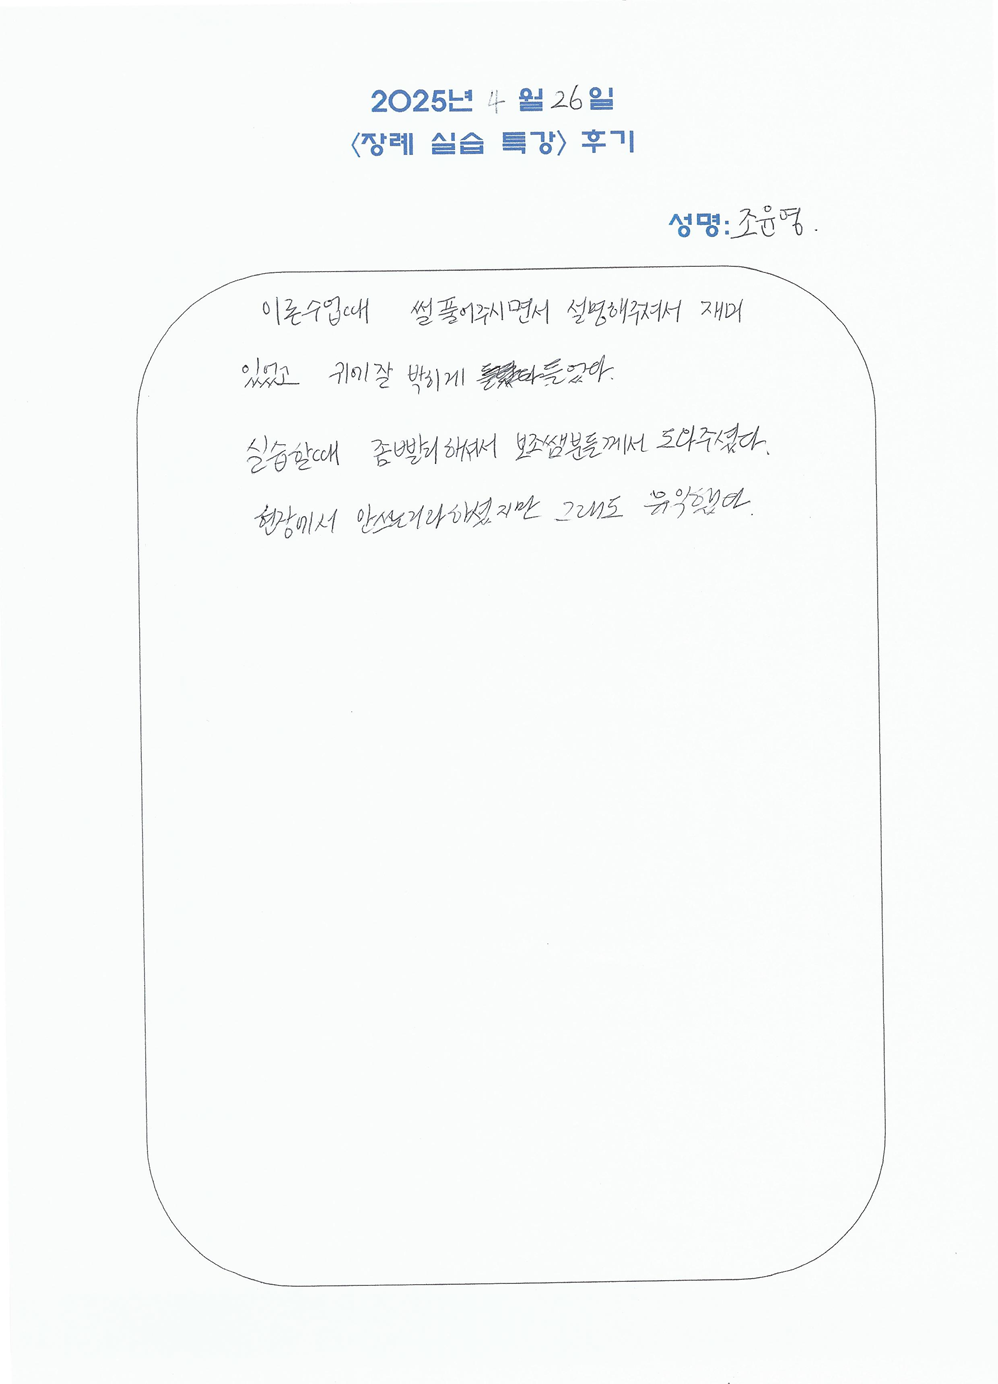 2025년 4 월 26 일
<장례 실습 특강> 후기
성명: 조윤영.
이론수업때 썰풀어주시면서 설명해주셔서 재미
있었고 귀에잘 박히게 들었다.
실습할때 좀빨리하셔서 보조쌤분들께서 도와주셨다.
현장에서 안쓰는거라하셨지만 그래도 유익했다.